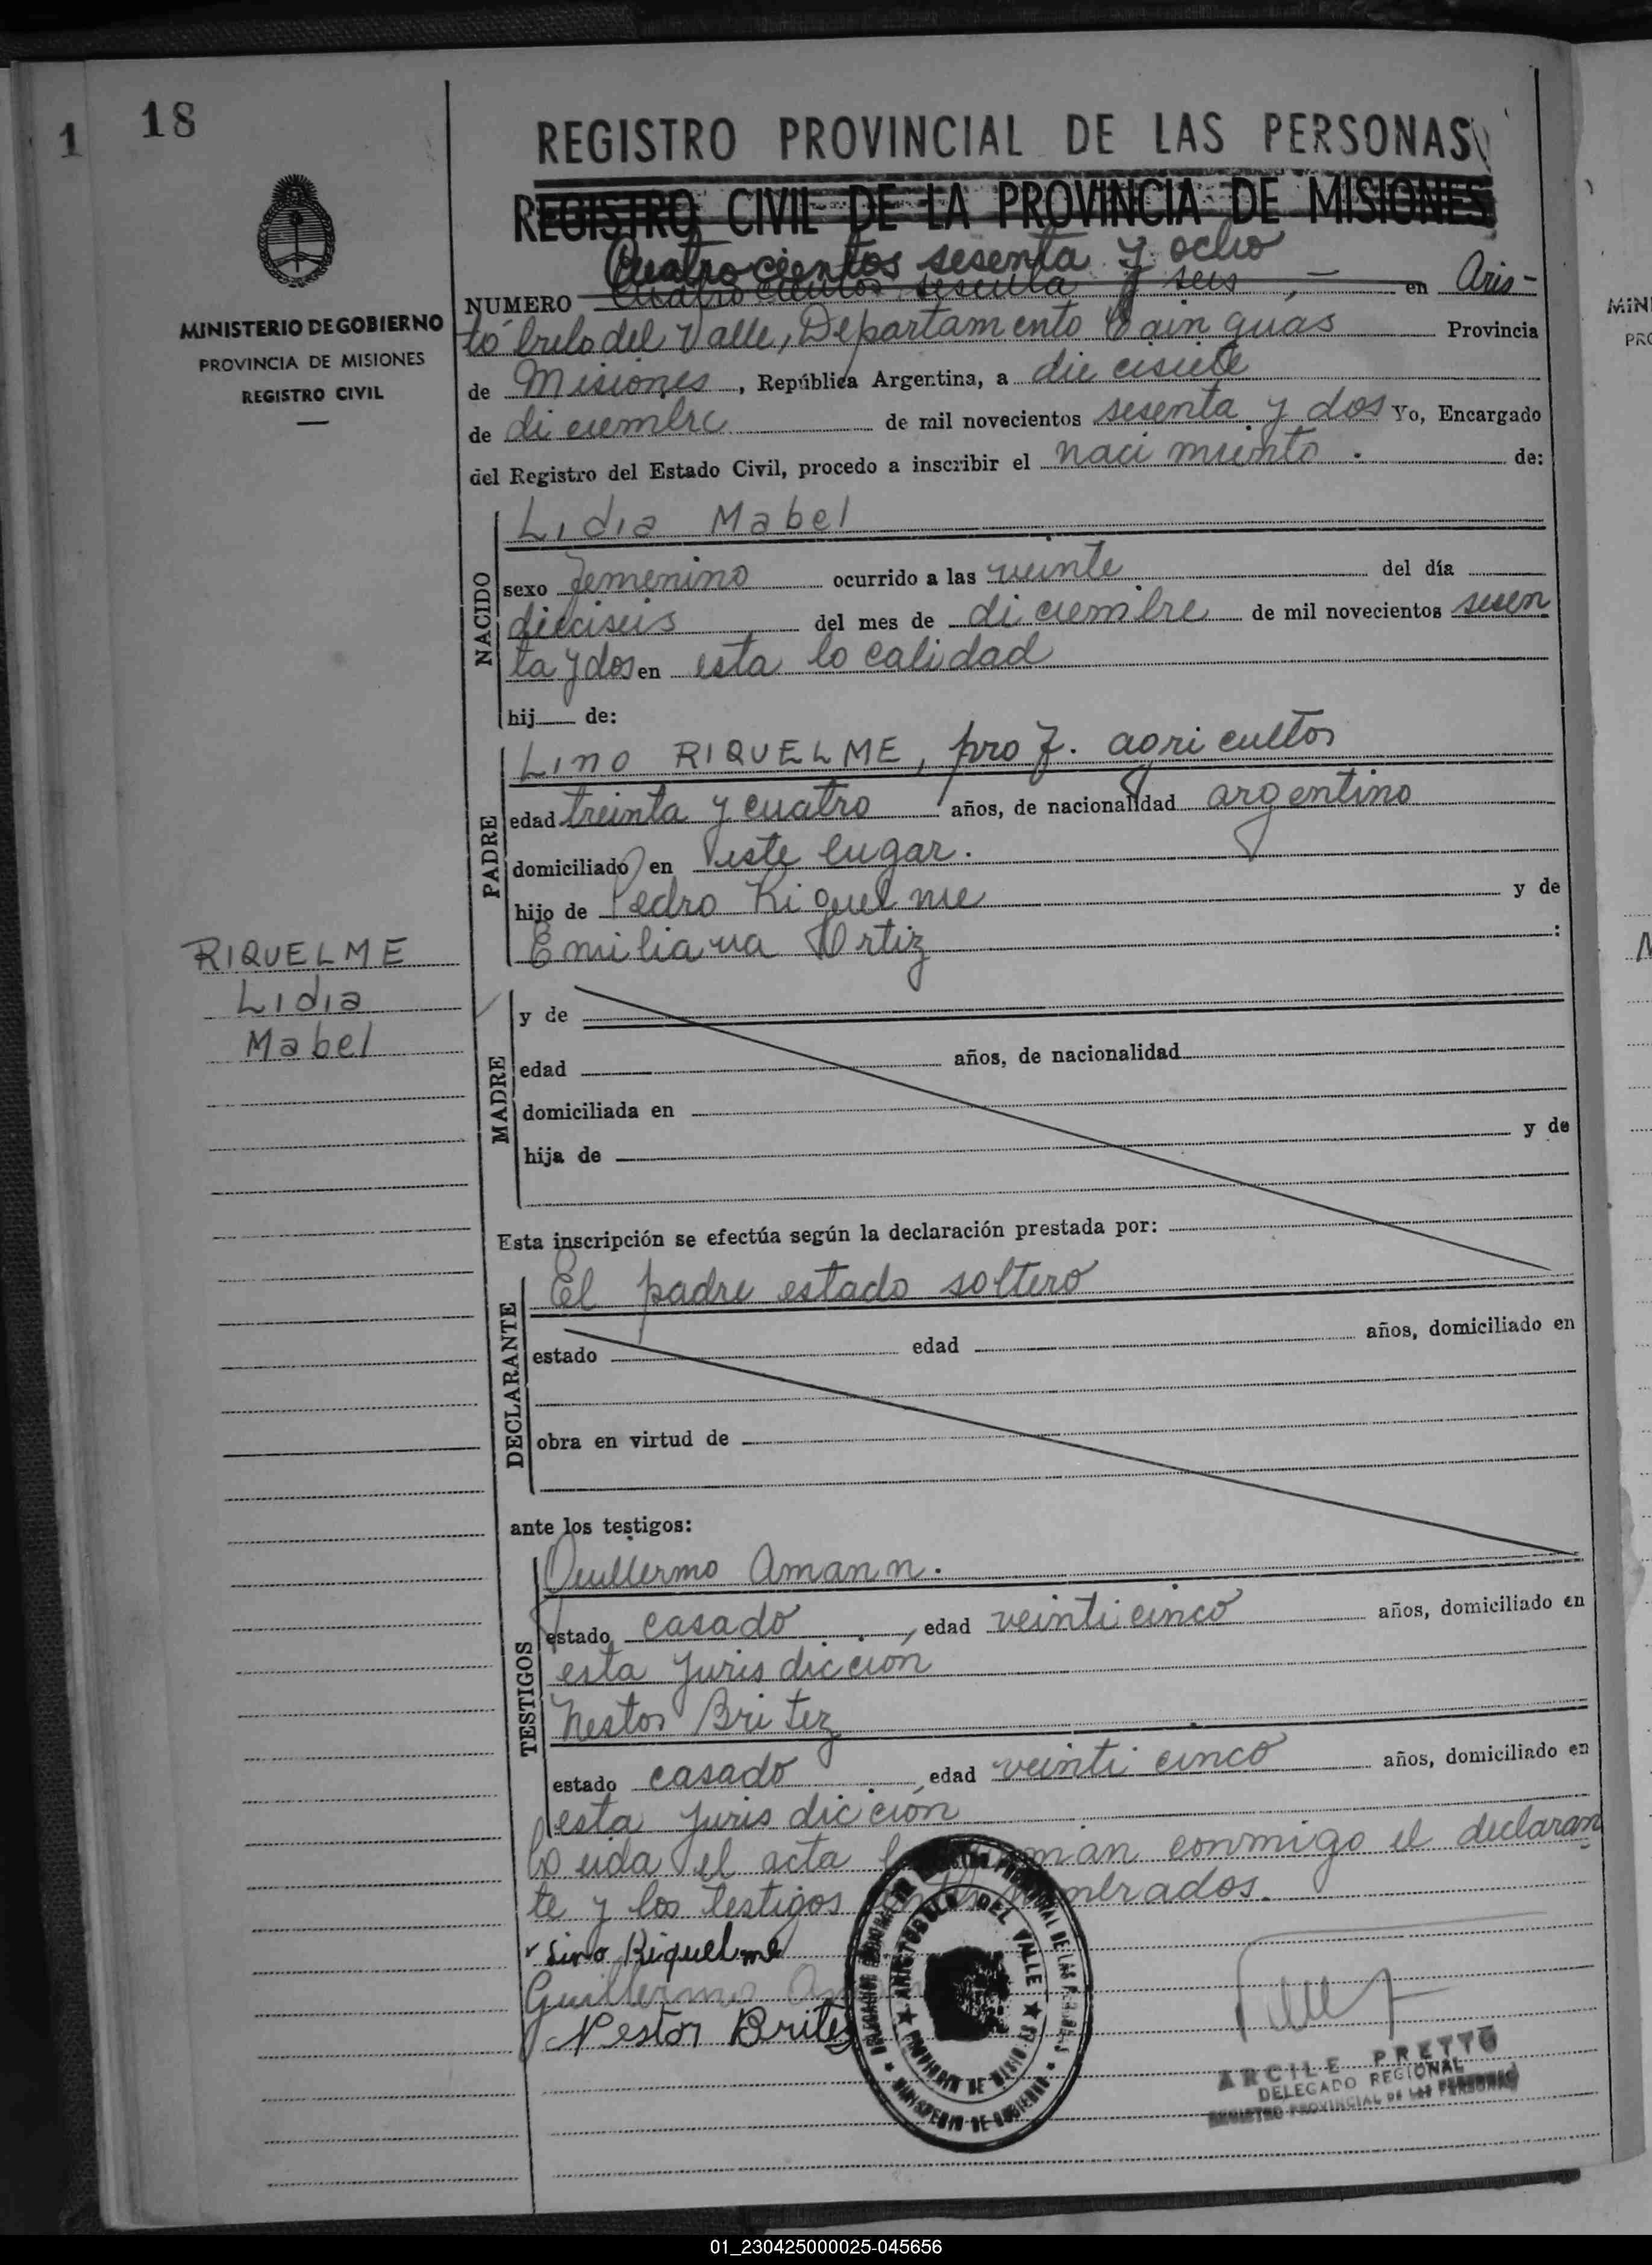 1 18
REGISTRO PROVINCIAL DE LAS PERSONAS
REGISTRO CIVIL DE LA PROVINCIA DE MISIONES
MINISTERIO DE GOBIERNO
PROVINCIA DE MISIONES
REGISTRO CIVIL
Cuatrocientos sesenta y ocho
NUMERO Cuatrocientos sesenta y seis, en Aris-
tóbulo del Valle, Departamento Cainguas Provincia
de Misiones, República Argentina, a diecisiete
de diciembre de mil novecientos sesenta y dos Yo, Encargado
del Registro del Estado Civil, procedo a inscribir el nacimiento. de:
NACIDO
Lidia Mabel
sexo femenino ocurrido a las veinte del día
dieciseis del mes de diciembre de mil novecientos sesen
ta y dos en esta localidad
hij de:
PADRE
Lino RIQUELME, prof. agricultor
edad treinta y cuatro años, de nacionalidad argentino
domiciliado en este lugar.
hijo de Pedro Riquelme y de
Emiliana Ortiz :
RIQUELME
Lidia
Mabel
MADRE
y de
edad años, de nacionalidad
domiciliada en
hija de y de
Esta inscripción se efectúa según la declaración prestada por:
DECLARANTE
El padre estado soltero
estado edad años, domiciliado en
obra en virtud de
ante los testigos:
TESTIGOS
Guillermo Amann.
estado casado, edad veinticinco años, domiciliado en
esta jurisdiccion
Nestor Britez
estado casado, edad veinticinco años, domiciliado en
esta jurisdiccion
Leida el acta la firman conmigo el declaran
te y los testigos nombrados.
Lino Riquelme
Guillermo
Nestor Britez
ARISTOBULO DEL VALLE
PROVINCIA DE MISIONES
MINISTERIO DE GOBIERNO
ARCILE PRETTO
DELEGADO REGIONAL
REGISTRO PROVINCIAL DE LAS PERSONAS
01_230425000025-045656